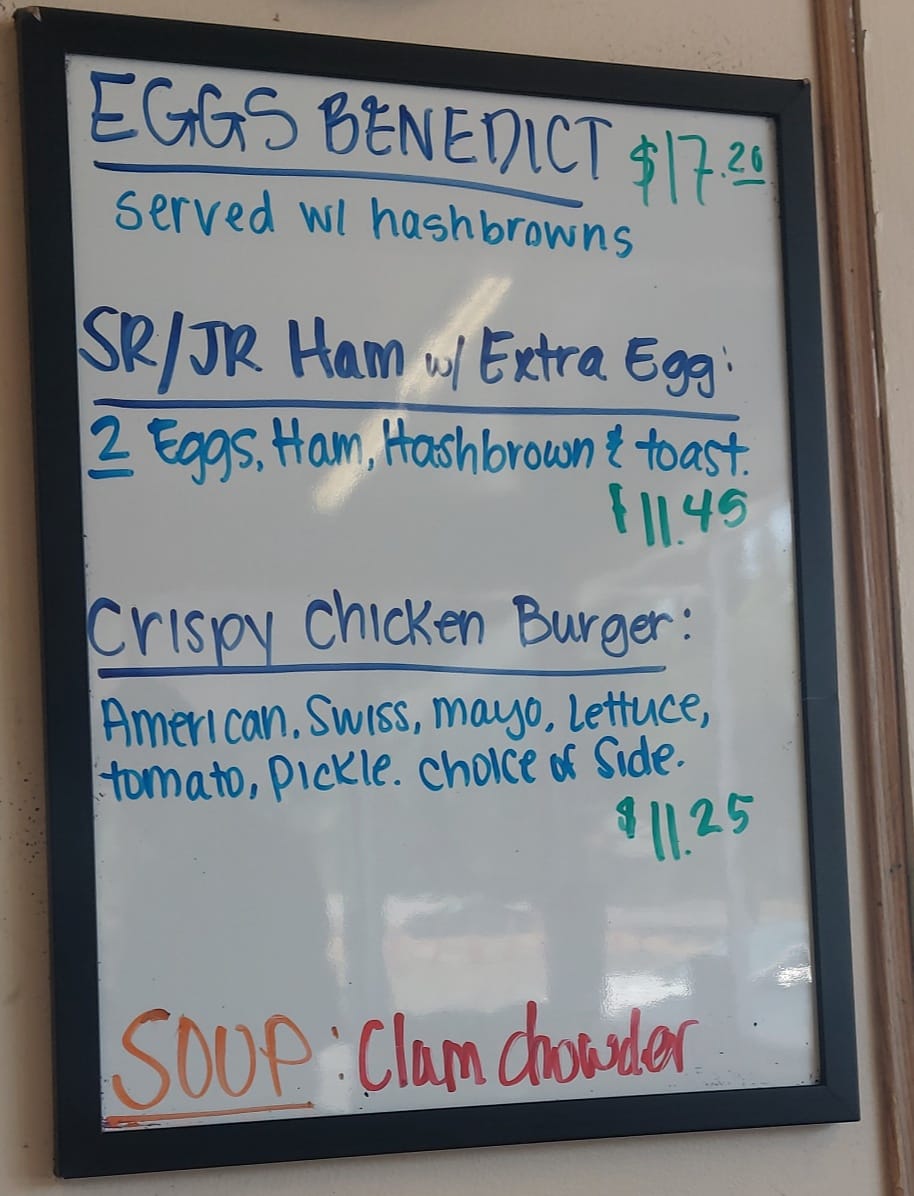 EGGS BENEDICT $17.20
served w/ hashbrowns
SR/JR Ham w/ Extra Egg:
2 Eggs, Ham, Hashbrown & toast.
$11.45
Crispy Chicken Burger:
American, Swiss, mayo, Lettuce,
tomato, Pickle. choice of Side.
$11.25
SOUP: Clam chowder